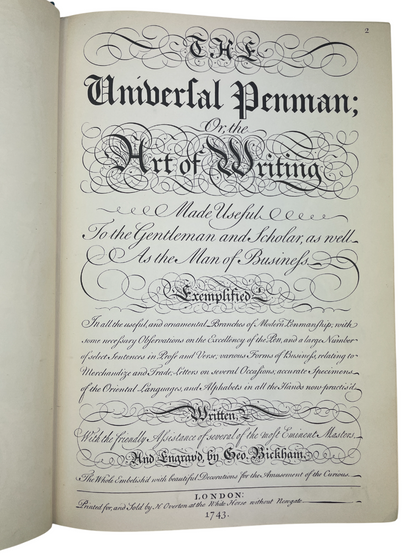 2
THE
Univerſal Penman;
Or, the
Art of Writing
Made Useful
To the Gentleman and Scholar, as well
As the Man of Buſineſs.
Exemplified
In all the useful, and ornamental Branches of Modern Penmanſhip; with
some neceſsary Obſervations on the Excellency of the Pen, and a large Number
of select Sentences in Proſe and Verse; various Forms of Buſineſs, relating to
Merchandize and Trade; Letters on several Occaſions; accurate Specimens
of the Oriental Languages, and Alphabets in all the Hands now practis'd.
Written,
With the friendly Aſsistance of several of the most Eminent Masters,
And Engrav'd, by Geo. Bickham.
The Whole Embelish'd with beautiful Decorations for the Amusement of the Curious.
LONDON:
Printed for, and Sold by H. Overton at the White Horse without Newgate.
1743.